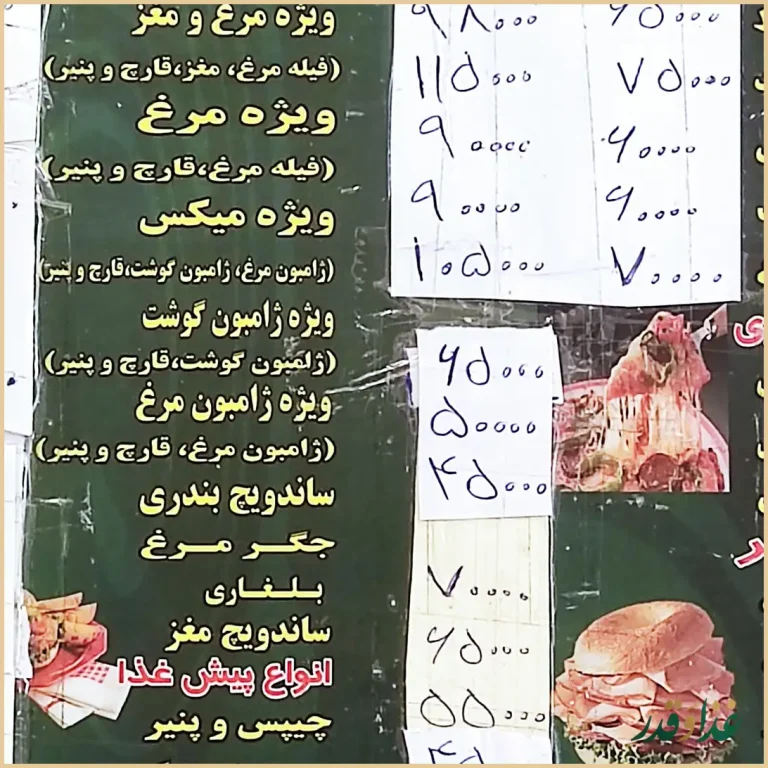 ویژه مرغ و مغز
۹۸۰۰۰ ۶۵۰۰۰
(فیله مرغ، مغز،قارچ و پنیر)
۱۱۵۰۰۰ ۷۵۰۰۰
ویژه مرغ
۹۰۰۰۰ ۶۰۰۰۰
(فیله مرغ،قارچ و پنیر)
ویژه میکس
۹۰۰۰۰ ۶۰۰۰۰
(ژامبون مرغ، ژامبون گوشت،قارچ و پنیر)
۱۰۵۰۰۰ ۷۰۰۰۰
ویژه ژامبون گوشت
(ژامبون گوشت،قارچ و پنیر)
۶۵۰۰۰
ویژه ژامبون مرغ
۵۰۰۰۰
(ژامبون مرغ، قارچ و پنیر)
ساندویچ بندری
۴۵۰۰۰
جگر مرغ
بلغاری
۷۰۰۰۰
ساندویچ مغز
۶۵۰۰۰
انواع پیش غذا
چیپس و پنیر
۵۵۰۰۰
غذا و قدر